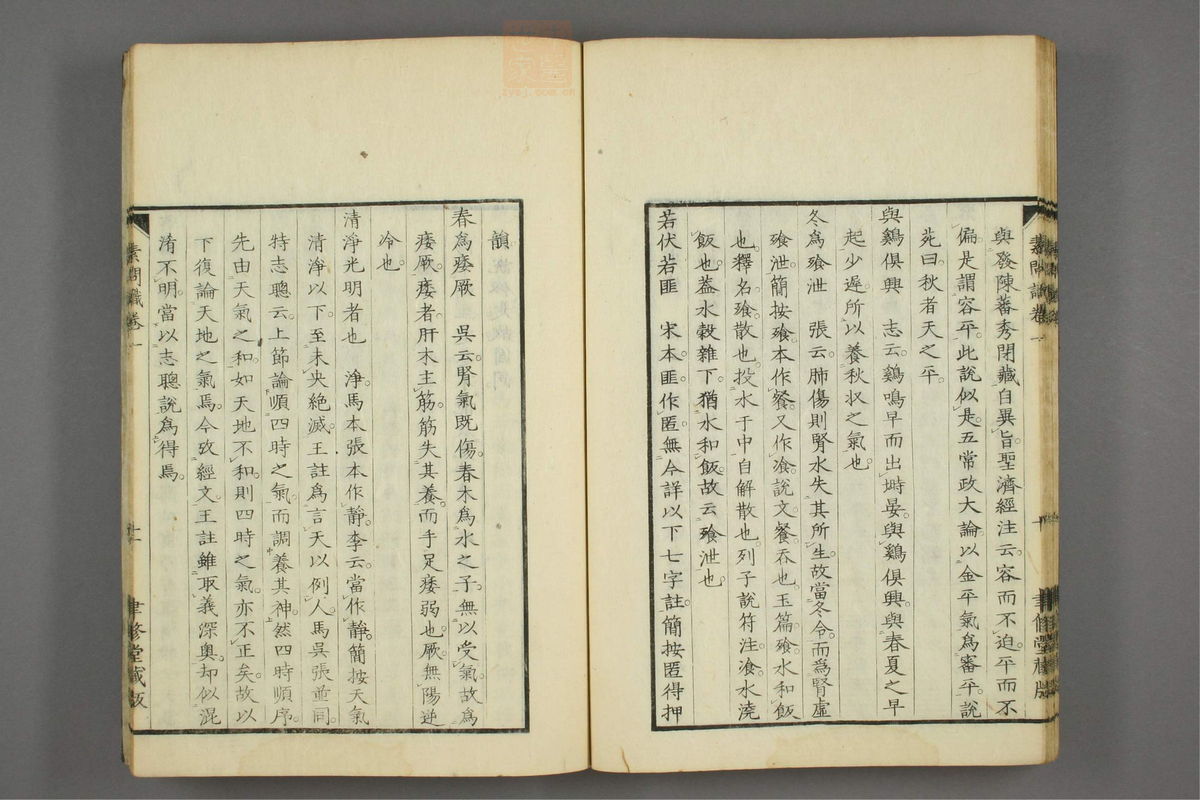 素問識卷一
十
聿修堂藏版
與發陳蕃秀閉藏自異旨聖濟經注云容而不迫平而不
偏是謂容平此說似是五常政大論以金平氣爲審平說
苑曰秋者天之平
與鷄俱興 志云鷄鳴早而出塒晏與鷄俱興與春夏之早
起少遲所以養秋收之氣也
冬爲飱泄 張云肺傷則腎水失其所生故當冬令而爲腎虛
飱泄簡按飱本作餐又作飡說文餐吞也玉篇飱水和飯
也釋名飱散也投水于中自解散也列子說符注飡水澆
飯也蓋水穀雜下猶水和飯故云飱泄也
若伏若匪 宋本匪作匿無今詳以下七字註簡按匿得押
韻
春爲痿厥 吳云腎氣既傷春木爲水之子無以受氣故爲
痿厥痿者肝木主筋筋失其養而手足痿弱也厥無陽逆
冷也
清淨光明者也 淨馬本張本作靜李云當作靜簡按天氣
清淨以下至未央絶滅王註爲言天以例人馬吳張並同
特志聰云上節論順四時之氣而調養其神然四時順序
先由天氣之和如天地不和則四時之氣亦不正矣故以
下復論天地之氣焉今攷經文王註雖取義深奥却似混
淆不明當以志聰說爲得焉
素問識卷一
十一
聿修堂藏版